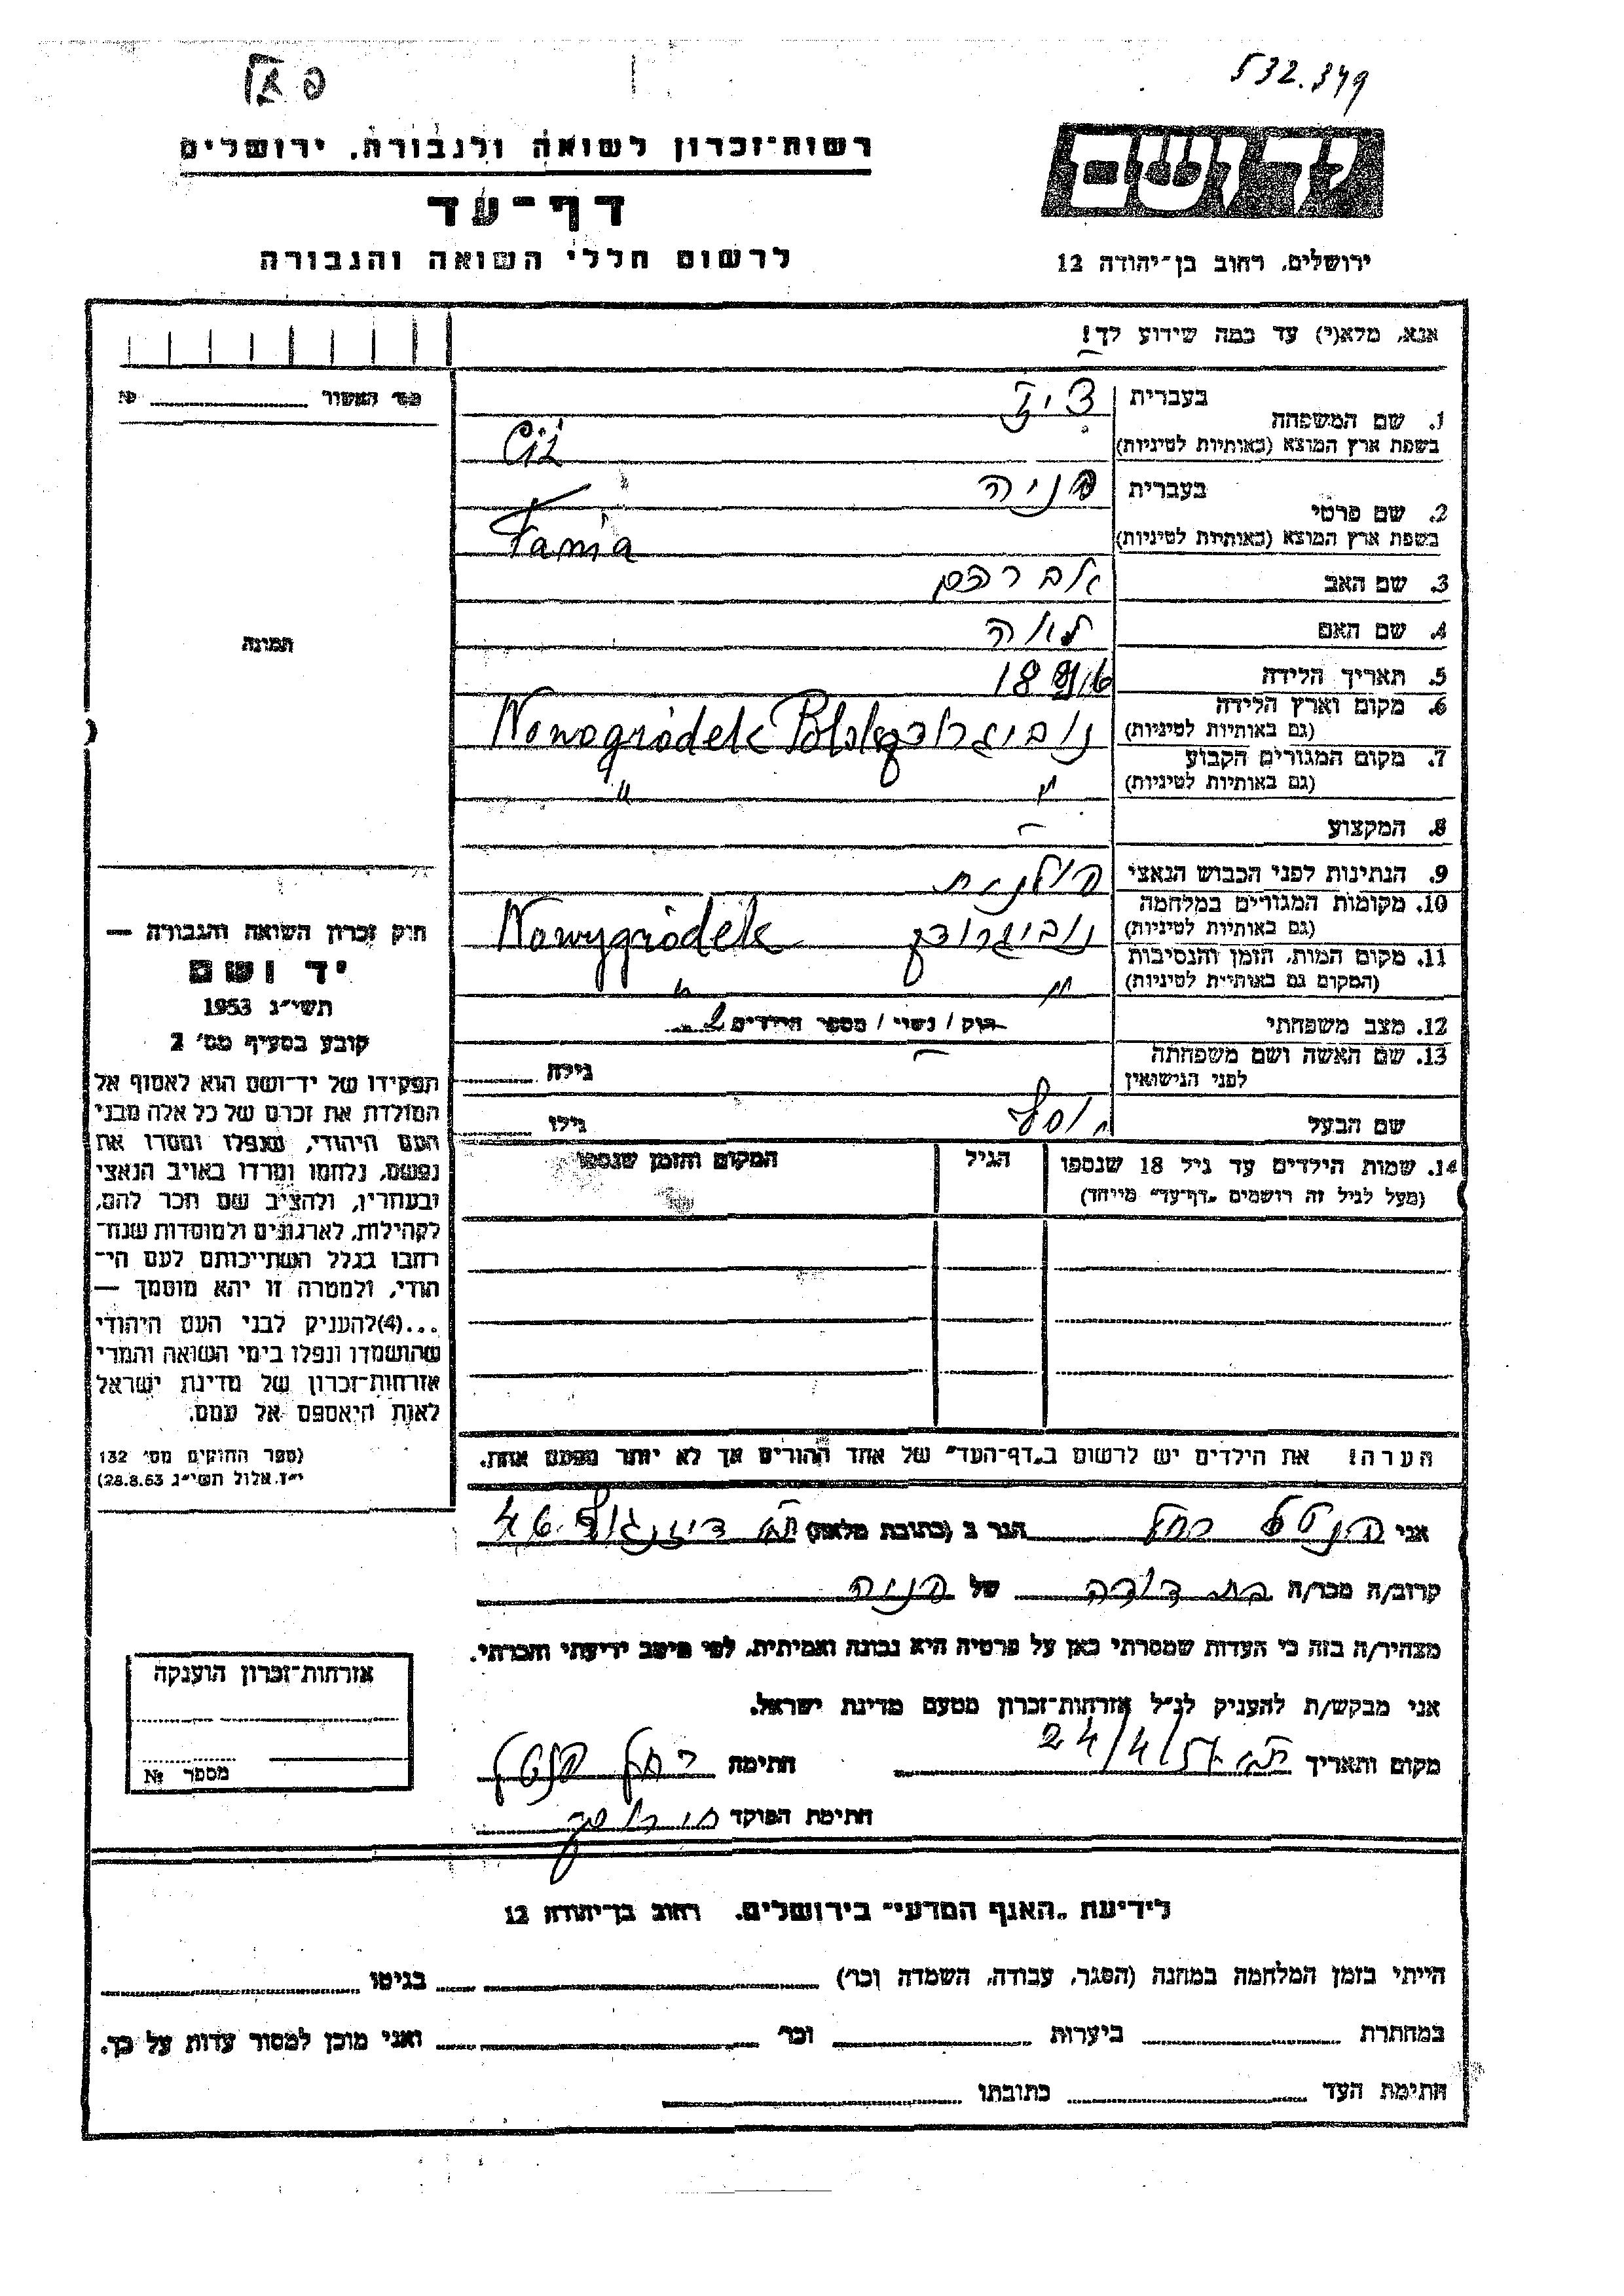 532.349
רשות־זכרון לשואה ולגבורה, ירושלים
דף־עד
לרשום חללי השואה והגבורה
ירושלים, רחוב בן־יהודה 12
אנא, מלא(י) עד כמה שידוע לך!
מס׳ האשור № 
תמונה
1. שם המשפחה בעברית
בשפת ארץ המוצא (באותיות לטיניות)
2. שם פרטי בעברית פניה
בשפת ארץ המוצא (באותיות לטיניות) Fania
3. שם האב אברהם
4. שם האם לאה
5. תאריך הלידה
6. מקום וארץ הלידה
(גם באותיות לטיניות) נוביגרודק Nowogródek
7. מקום המגורים הקבוע
(גם באותיות לטיניות) " "
8. המקצוע —
9. הנתינות לפני הכבוש הנאצי פולנית
10. מקומות המגורים במלחמה
(גם באותיות לטיניות) נוביגרודק Nowygródek
11. מקום המות, הזמן והנסיבות
(המקום גם באותיות לטיניות) " "
12. מצב משפחתי רוק / נשוי / מספר הילדים 2
13. שם האשה ושם משפחתה
לפני הנישואין — גילה
שם הבעל יוסף גילו
14. שמות הילדים עד גיל 18 שנספו
(מעל לגיל זה רושמים „דף־עד" מייחד)
הגיל
המקום והזמן שנספו
הערה! את הילדים יש לרשום ב„דף־העד" של אחד ההורים אך לא יותר מפעם אחת.
חוק זכרון השואה והגבורה —
יד ושם
תשי״ג 1953
קובע בסעיף מס׳ 2
תפקידו של יד־ושם הוא לאסוף אל
המולדת את זכרם של כל אלה מבני
העם היהודי, שנפלו ומסרו את
נפשם, נלחמו ומרדו באויב הנאצי
ובעוזריו, ולהציב שם וזכר להם,
לקהילות, לארגונים ולמוסדות שנח־
רחבו בגלל השתייכותם לעם הי־
הודי, ולמטרה זו יהא מוסמך —
...(4)להעניק לבני העם היהודי
שהושמדו ונפלו בימי השואה והמרי
אזרחות־זכרון של מדינת ישראל
לאות היאספם אל עמם.
(ספר החוקים מס׳ 132
י״ז, אלול תשי״ג 28.8.53)
אני רחל הגר ב (כתובת מלאה) ת״א דיזנגוף 46
קרוב/ה מכר/ה בת דודה של פניה
מצהיר/ה בזה כי העדות שמסרתי כאן על פרטיה היא נכונה ואמיתית, לפי מיטב ידיעתי והכרתי.
אני מבקש/ת להעניק לנ״ל אזרחות־זכרון מטעם מדינת ישראל.
מקום ותאריך ת״א 24/4/57 חתימה רחל
חתימת הפוקד
אזרחות־זכרון הוענקה
מספר №
לידיעת „האגף המדעי" בירושלים, רחוב בן־יהודה 12
הייתי בזמן המלחמה במחנה (הסגר, עבודה, השמדה וכר׳) בגיטו
במחתרת ביערות וכר׳ ואני מוכן למסור עדות על כך.
חתימת העד כתובתו